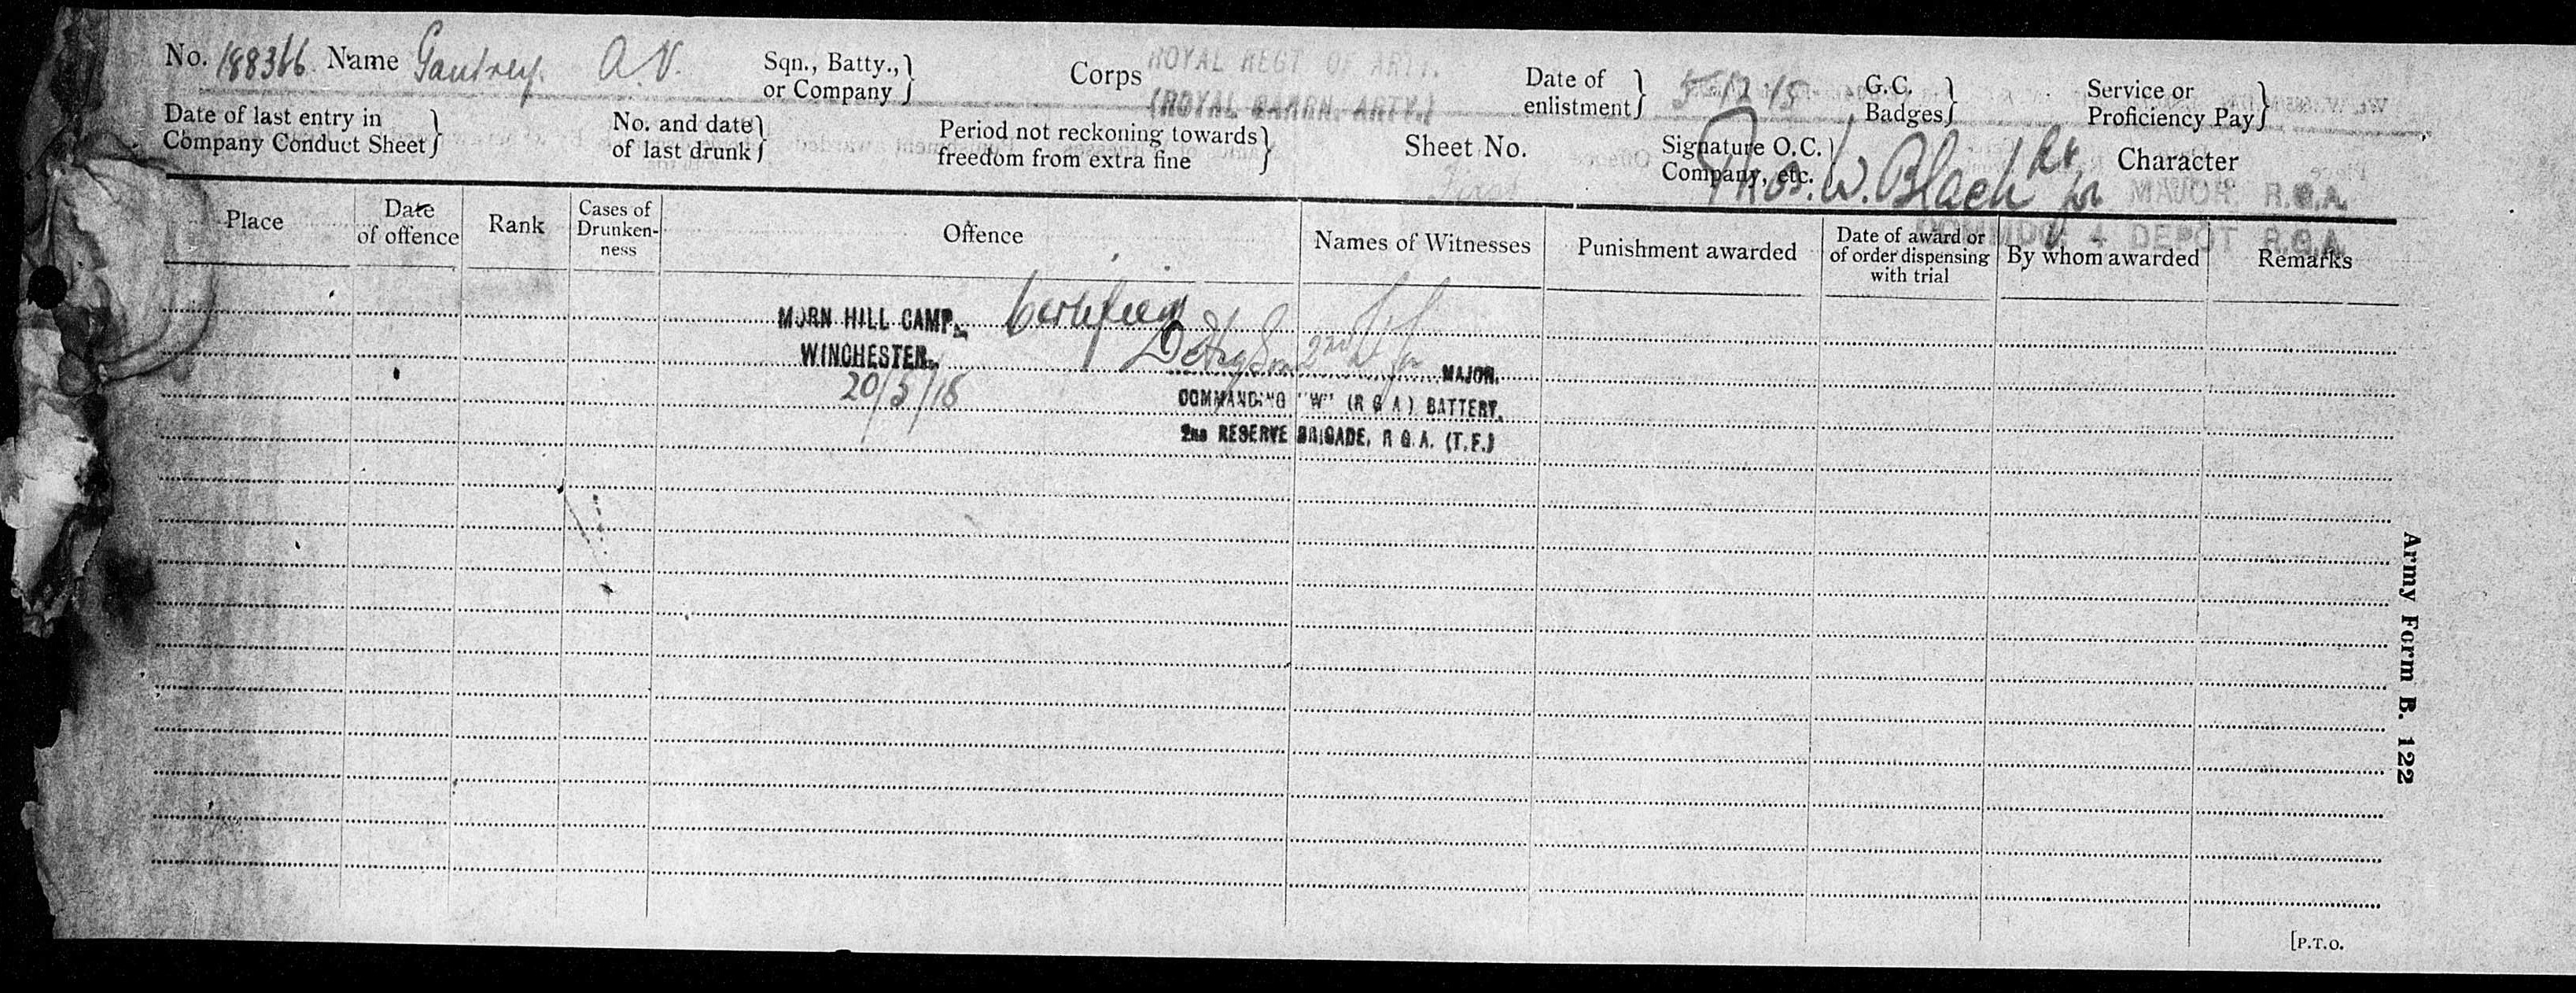 No. 188366 Name Gautrey. A.V. Sqn., Batty., or Company Corps ROYAL REGT OF ARTY. (ROYAL GARRN. ARTY.) Date of enlistment 5-12-15 G.C. Badges Service or Proficiency Pay
Date of last entry in Company Conduct Sheet No. and date of last drunk Period not reckoning towards freedom from extra fine Sheet No. First Signature O.C. Company, etc. Thos. W. Black Lt for Character
MAJOR R.G.A.
COMMDG 4 DEPOT R.G.A.
Place Date of offence Rank Cases of Drunken-ness Offence Names of Witnesses Punishment awarded Date of award or of order dispensing with trial By whom awarded Remarks
MORN HILL CAMP, Certified
WINCHESTER. 2nd Lt for MAJOR.
20/5/18 COMMANDING "W" (R G A) BATTERY.
2nd RESERVE BRIGADE, R G A. (T.F.)
Army Form B. 122
[P.T.O.